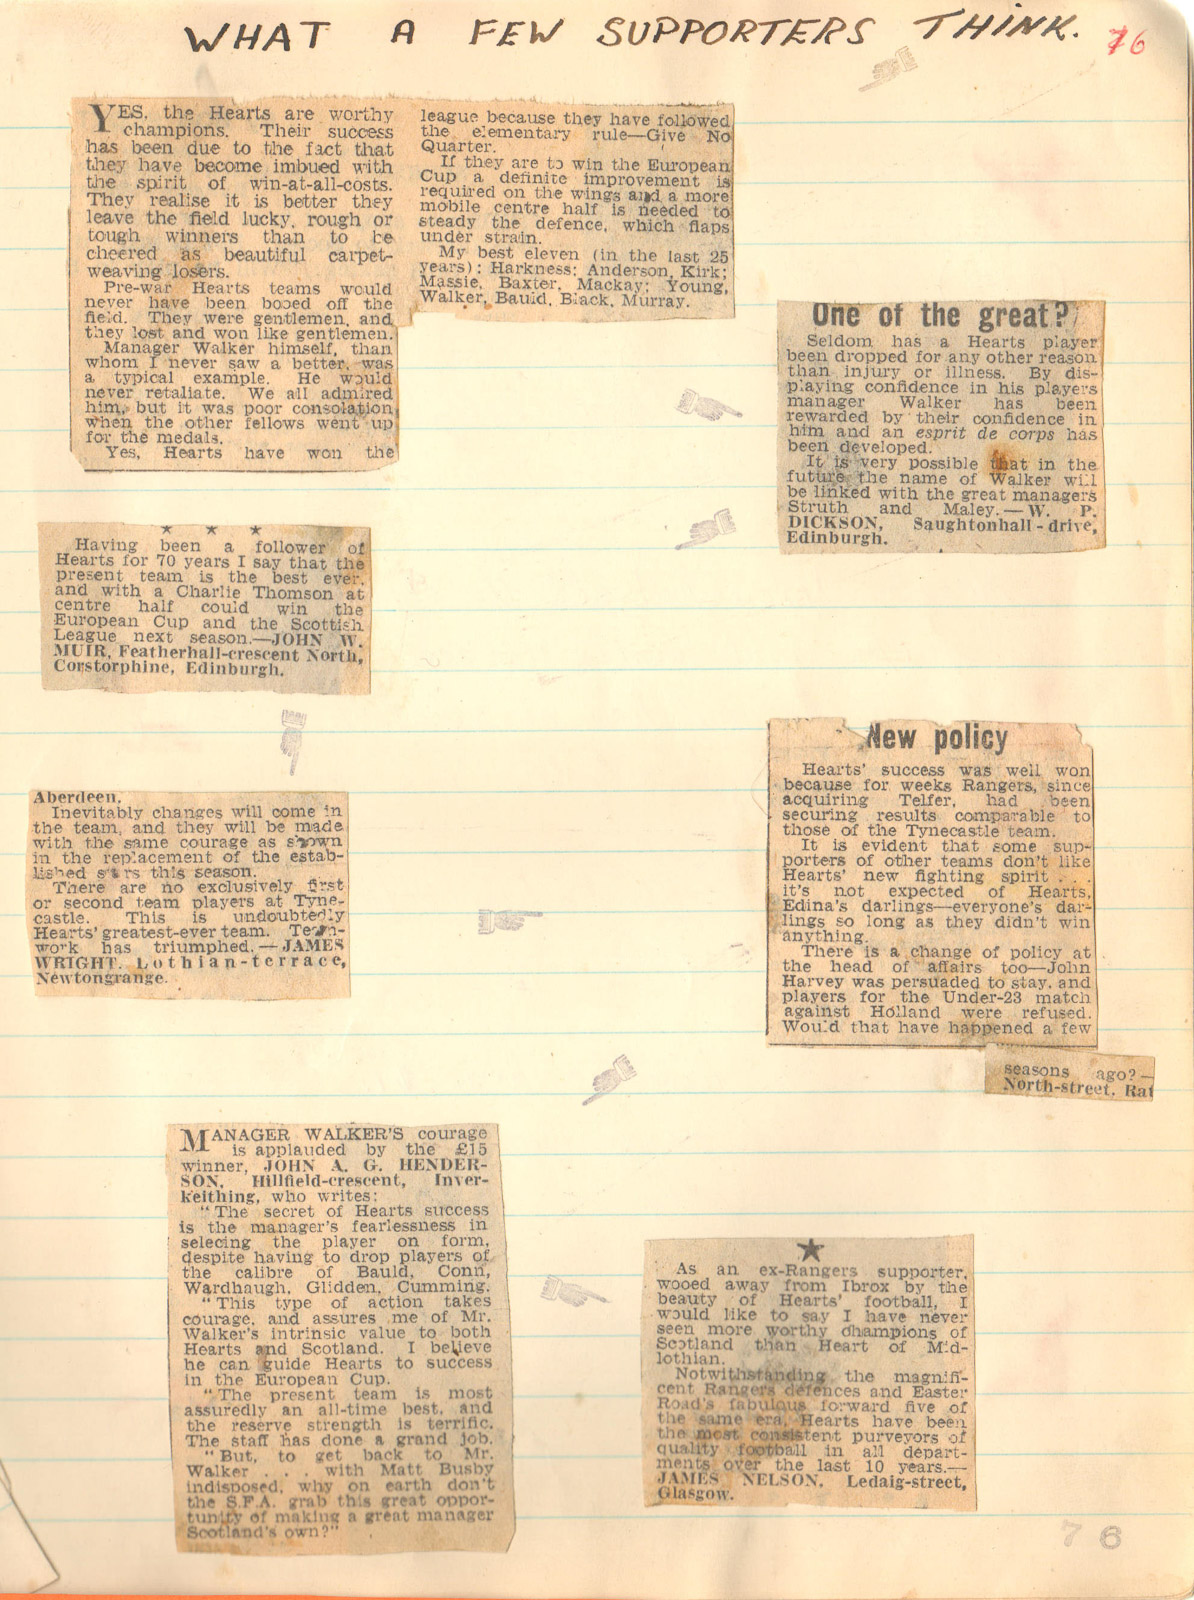 WHAT A FEW SUPPORTERS THINK.
76
YES, the Hearts are worthy
champions. Their success
has been due to the fact that
they have become imbued with
the spirit of win-at-all-costs.
They realise it is better they
leave the field lucky, rough or
tough winners than to be
cheered as beautiful carpet-
weaving losers.
Pre-war Hearts teams would
never have been booed off the
field. They were gentlemen, and
they lost and won like gentlemen.
Manager Walker himself, than
whom I never saw a better, was
a typical example. He would
never retaliate. We all admired
him, but it was poor consolation
when the other fellows went up
for the medals.
Yes, Hearts have won the
league because they have followed
the elementary rule—Give No
Quarter.
If they are to win the European
Cup a definite improvement is
required on the wings and a more
mobile centre half is needed to
steady the defence, which flaps
under strain.
My best eleven (in the last 25
years): Harkness; Anderson, Kirk;
Massie, Baxter, Mackay; Young,
Walker, Bauld, Black, Murray.
One of the great?
Seldom has a Hearts player
been dropped for any other reason
than injury or illness. By dis-
playing confidence in his players
manager Walker has been
rewarded by their confidence in
him and an esprit de corps has
been developed.
It is very possible that in the
future the name of Walker will
be linked with the great managers
Struth and Maley.—W. P.
DICKSON, Saughtonhall-drive,
Edinburgh.
★ ★ ★
Having been a follower of
Hearts for 70 years I say that the
present team is the best ever,
and with a Charlie Thomson at
centre half could win the
European Cup and the Scottish
League next season.—JOHN W.
MUIR, Featherhall-crescent North,
Corstorphine, Edinburgh.
New policy
Hearts' success was well won
because for weeks Rangers, since
acquiring Telfer, had been
securing results comparable to
those of the Tynecastle team.
It is evident that some sup-
porters of other teams don't like
Hearts' new fighting spirit . . .
it's not expected of Hearts,
Edina's darlings—everyone's dar-
lings so long as they didn't win
anything.
There is a change of policy at
the head of affairs too—John
Harvey was persuaded to stay, and
players for the Under-23 match
against Holland were refused.
Would that have happened a few
seasons ago?—
North-street, Rat
Aberdeen.
Inevitably changes will come in
the team, and they will be made
with the same courage as shown
in the replacement of the estab-
lished stars this season.
There are no exclusively first
or second team players at Tyne-
castle. This is undoubtedly
Hearts' greatest-ever team. Team-
work has triumphed.—JAMES
WRIGHT, Lothian-terrace,
Newtongrange.
MANAGER WALKER'S courage
is applauded by the £15
winner, JOHN A. G. HENDER-
SON, Hillfield-crescent, Inver-
keithing, who writes:
"The secret of Hearts success
is the manager's fearlessness in
selecing the player on form,
despite having to drop players of
the calibre of Bauld, Conn,
Wardhaugh, Glidden, Cumming.
"This type of action takes
courage, and assures me of Mr.
Walker's intrinsic value to both
Hearts and Scotland. I believe
he can guide Hearts to success
in the European Cup.
"The present team is most
assuredly an all-time best, and
the reserve strength is terrific.
The staff has done a grand job.
"But, to get back to Mr.
Walker . . . with Matt Busby
indisposed, why on earth don't
the S.F.A. grab this great oppor-
tunity of making a great manager
Scotland's own?"
★
As an ex-Rangers supporter,
wooed away from Ibrox by the
beauty of Hearts' football, I
would like to say I have never
seen more worthy champions of
Scotland than Heart of Mid-
lothian.
Notwithstanding the magnifi-
cent Rangers defences and Easter
Road's fabulous forward five of
the same era, Hearts have been
the most consistent purveyors of
quality football in all depart-
ments over the last 10 years.—
JAMES NELSON, Ledaig-street,
Glasgow.
76